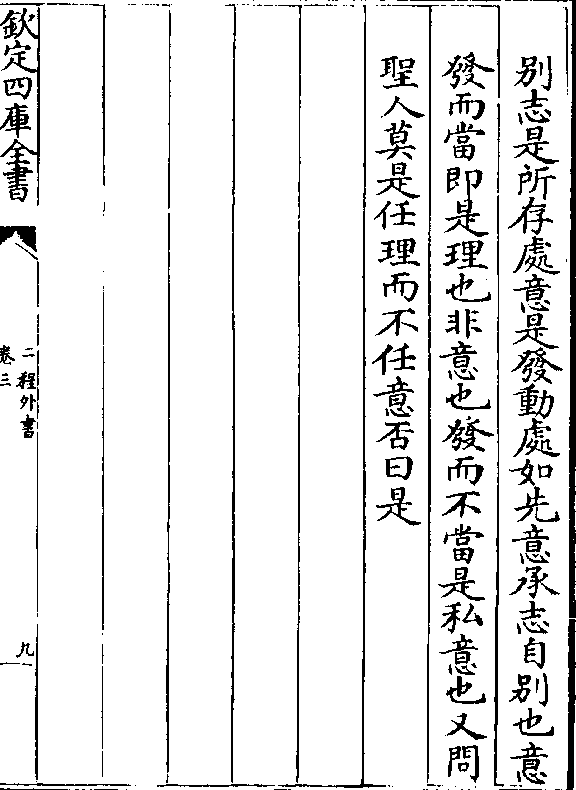 别志是所存處意是發動處如先意承志自别也意
發而當即是理也非意也發而不當是私意也又問
聖人莫是任理而不任意否曰是
欽定四庫全書
二程外書
卷三
九